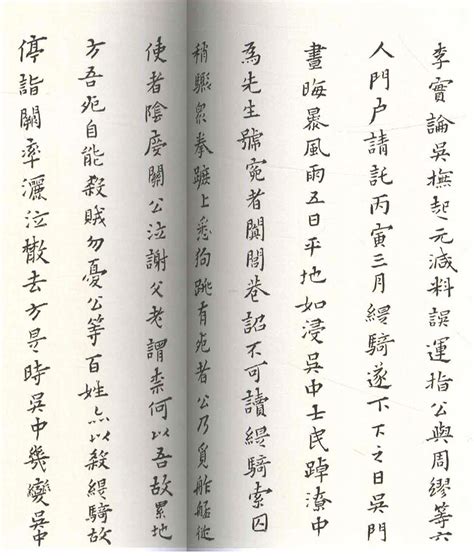 李實論吳撫起元減料誤運指公與周繆等六
人門戶請託丙寅三月緹騎遂下下之日吳門
晝晦暴風雨五日平地如浸吳中士民踔潦中
為先生號冤者闐閭巷詔不可讀緹騎索囚
稍驟眾拳蹠上悉狗跳有死者公乃覓舴艋從
使者陰度關公泣謝父老謂柰何以吾故累地
方吾死自能殺賊勿憂公等百姓亦以殺緹騎故
停詣闕率灑泣散去方是時吳中幾變吳中